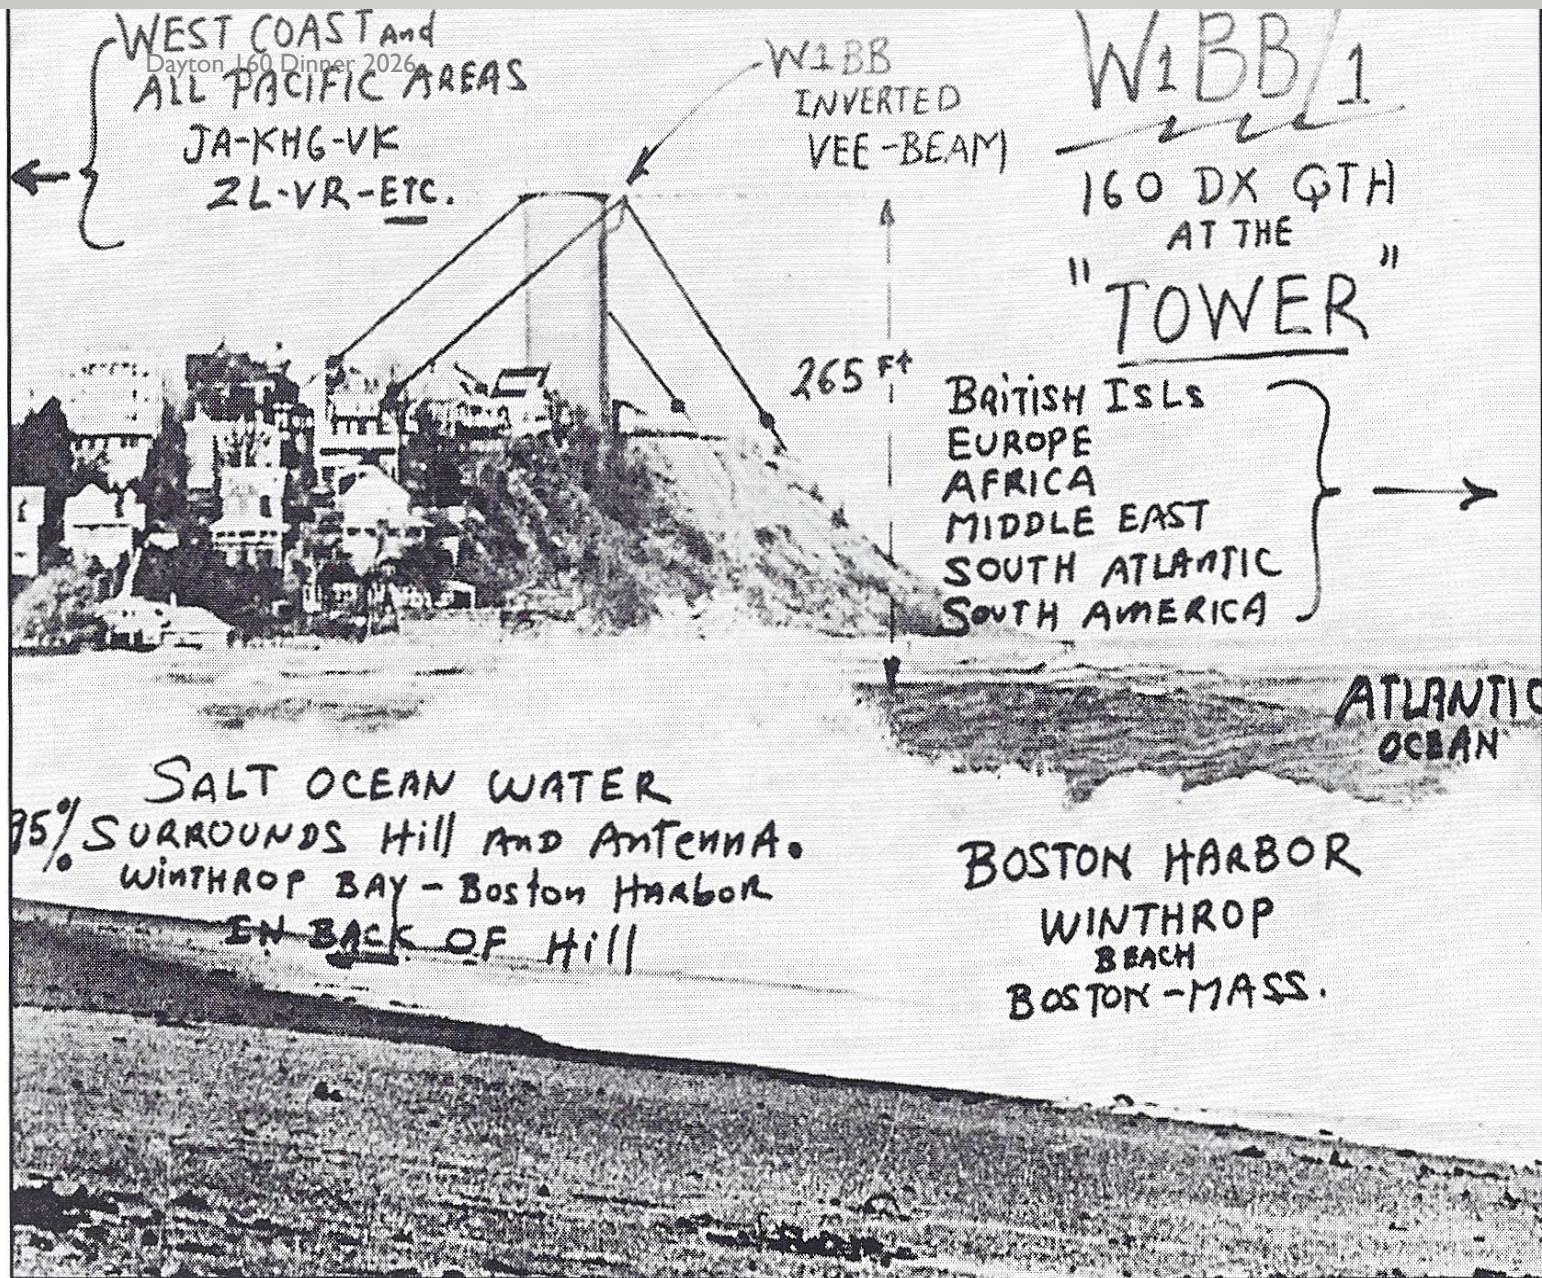 WEST COAST and
Dayton 160 Dinner 2026
ALL PACIFIC AREAS
JA-KH6-VK
ZL-VR-ETC.
W1BB
INVERTED
VEE-BEAM
W1BB/1
160 DX QTH
AT THE
"TOWER"
265 Ft
BRITISH ISLS
EUROPE
AFRICA
MIDDLE EAST
SOUTH ATLANTIC
SOUTH AMERICA
ATLANTIC
OCEAN
SALT OCEAN WATER
95% SURROUNDS Hill AND ANTENNA.
WINTHROP BAY - Boston HARboR
IN BACK OF Hill
BOSTON HARBOR
WINTHROP
BEACH
BOSTON-MASS.